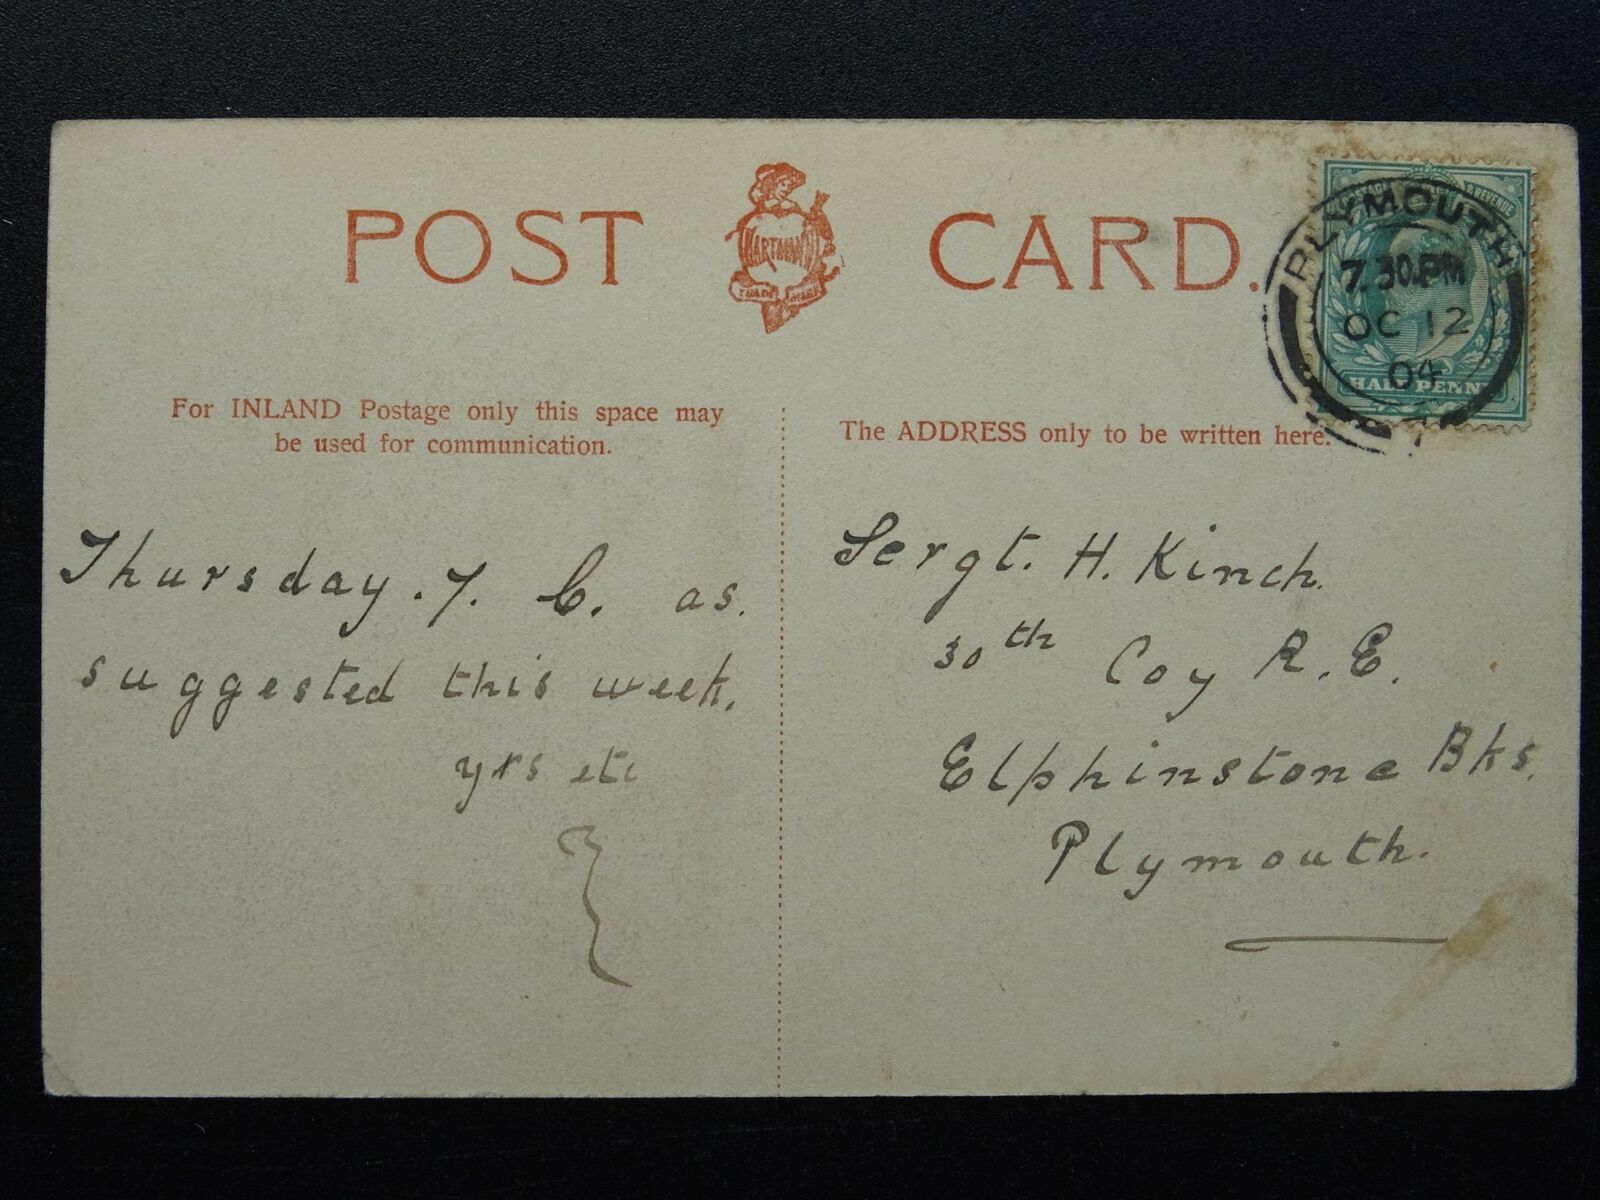 POST CARD.
HARTMANN
TRADE MARK
POSTAGE REVENUE
PLYMOUTH
7.30.PM
OC 12
04
HALF PENNY
For INLAND Postage only this space may
be used for communication.
The ADDRESS only to be written here.
Thursday. 7. C. as.
suggested this week.
yrs etc
Sergt. H. Kinch.
30th Coy R.E.
Elphinstone Bks.
Plymouth.